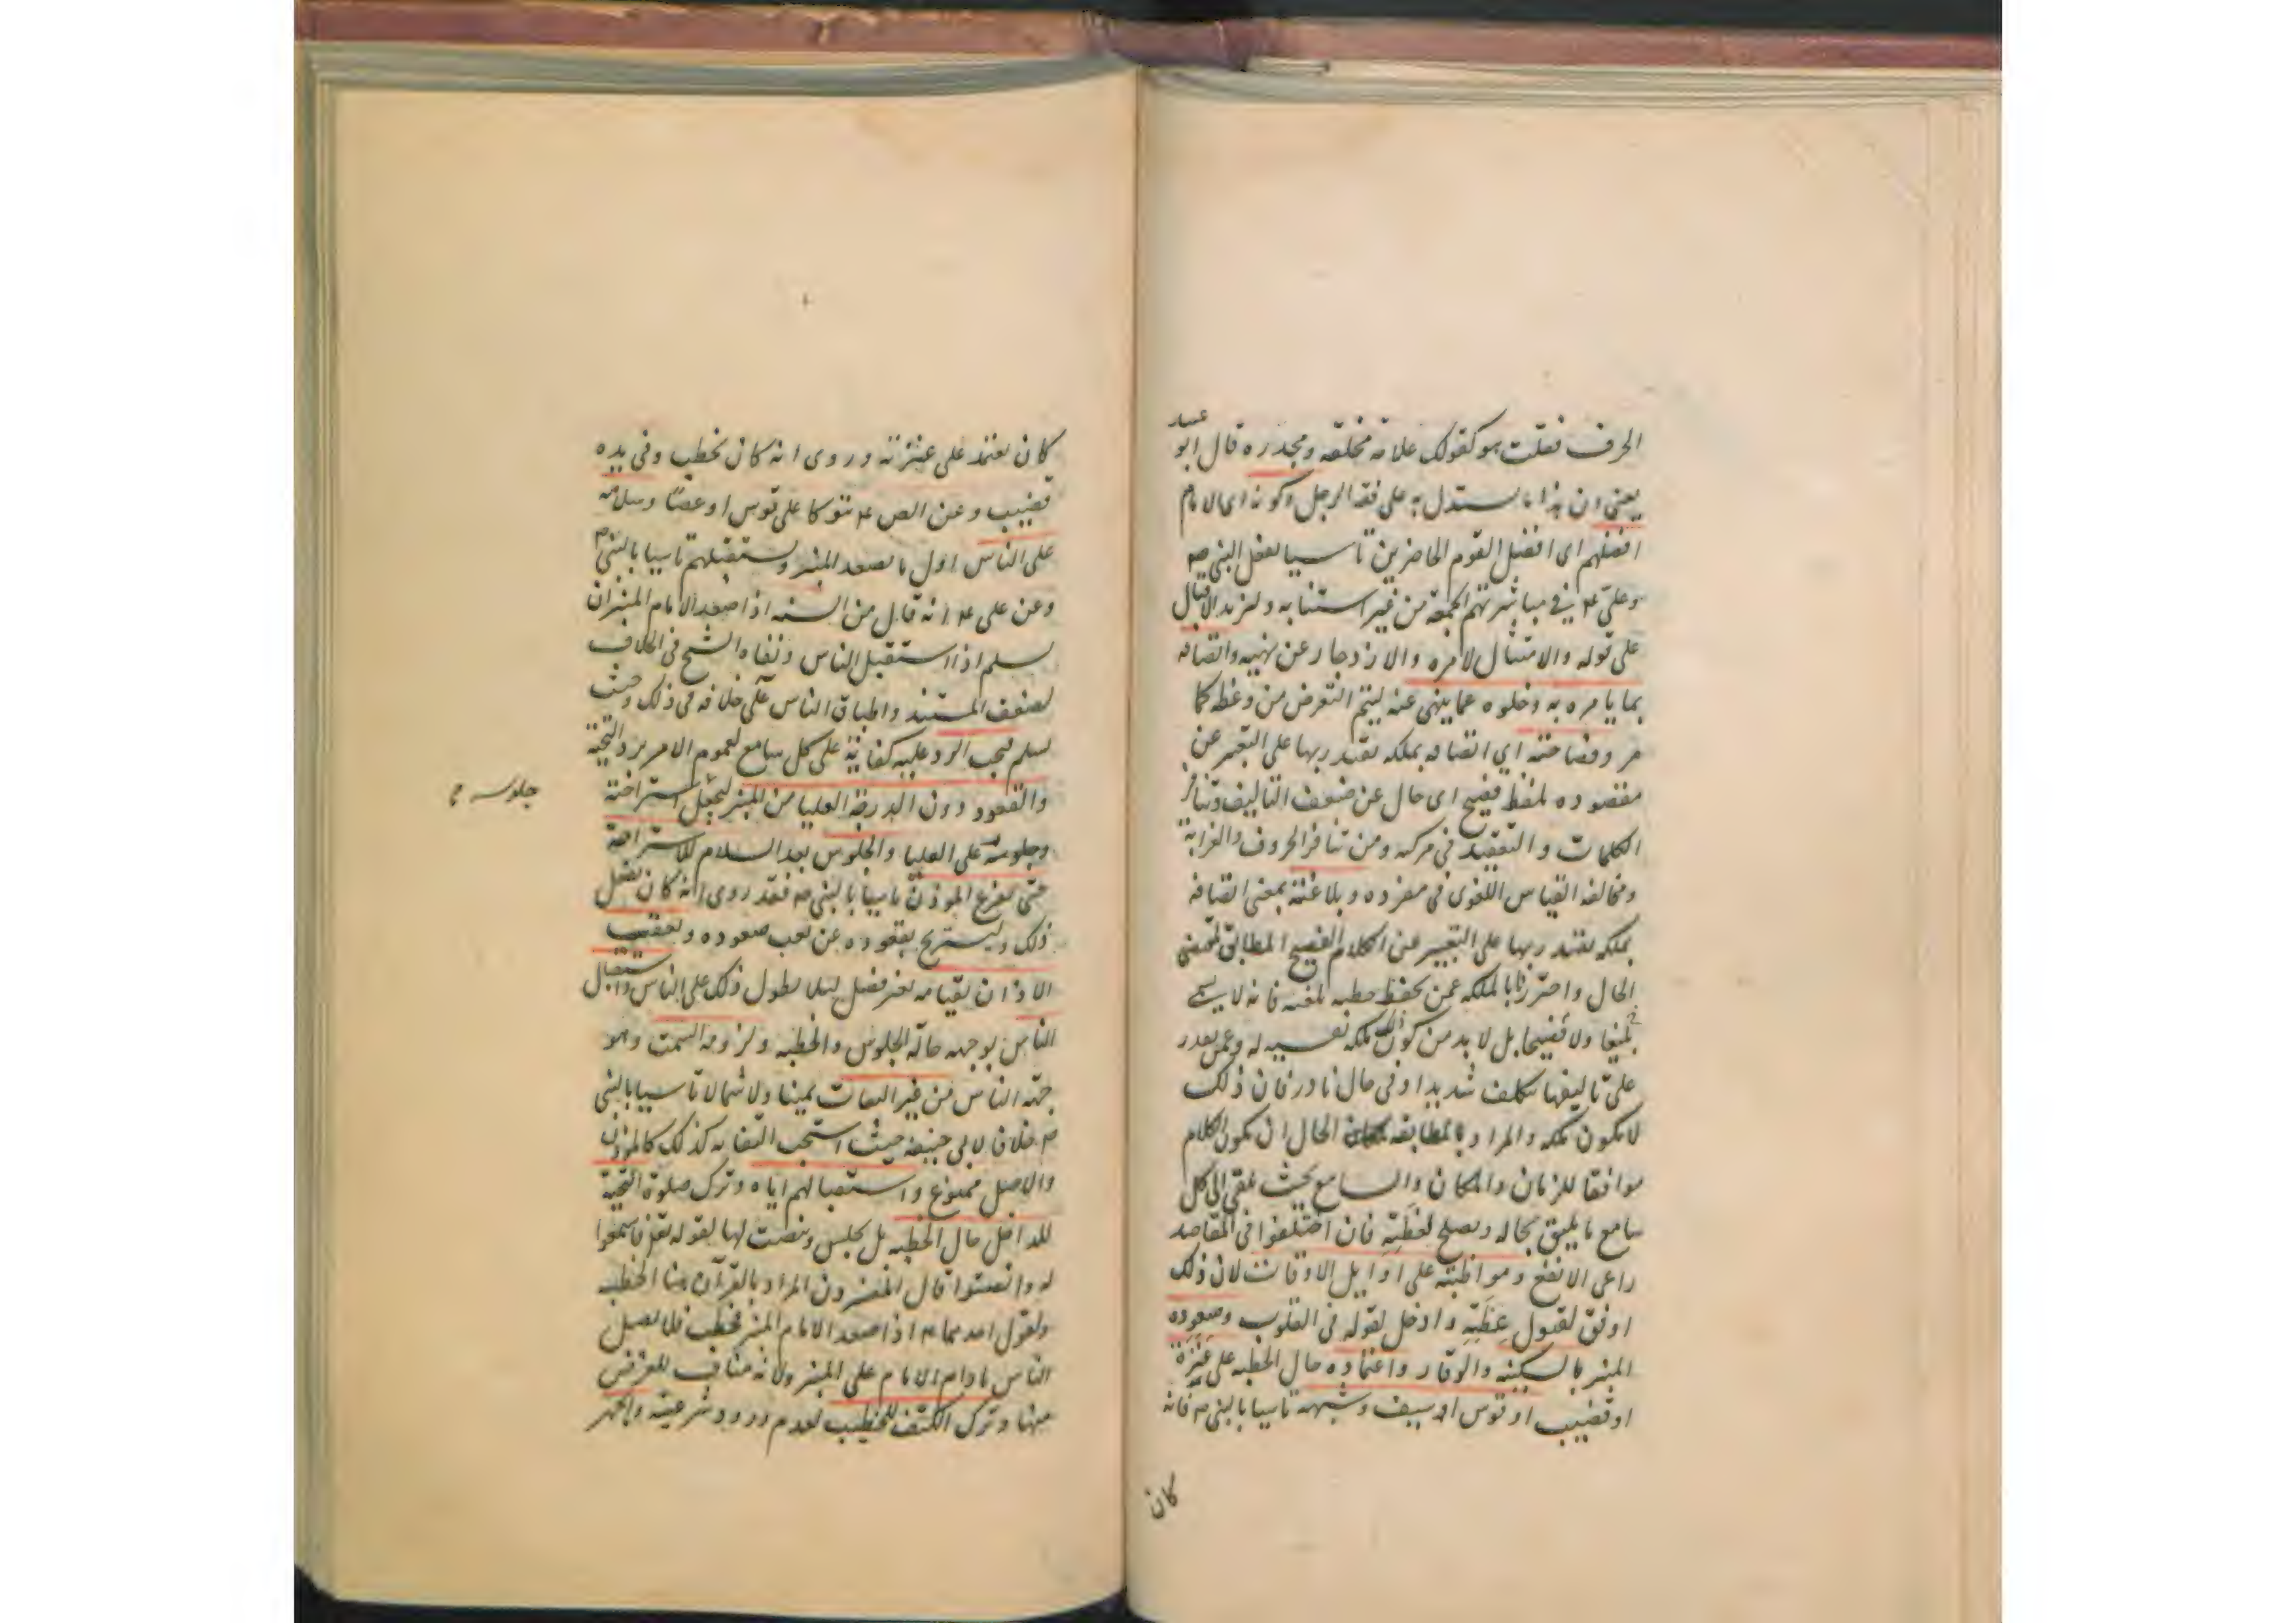 الحرف فقلت هو كقولك علامة مخلقة ومجدرة قال ابو عبيد
يعني ان هذا ما يستدل به على فقه الرجل وكونه اى الامام
افضلهم اى افضل القوم الحاضرين تأسيا بفعل النبى صه
وعلى ع في مباشرتهم الجمعة من غير استنابه ولمزيد الاقبال
على قوله والامتثال لامره والازدجار عن نهيه واتصافه
بما يامره به وخلوه عما ينهى عنه ليتم الغرض من وعظه كما
مر وفصاحته اي اتصافه بملكه يقتدر بها على التعبير عن
مقصوده بلفظ فصيح اى خال عن ضعف التاليف وتنافر
الكلمات والتعقيد فى مركبه ومن تنافر الحروف والغرابة
ومخالفه القياس اللغوى فى مفرده وبلاغته بمعنى اتصافه
بملكه يقتدر بها على التعبير عن الكلام الفصيح المطابق لمقتضى
الحال واحترزنا بالملكه عمن يحفظ خطبه بلغيه فانه لا يسمى
بليغا ولا فصيحا بل لا بد من كون ذلك ملكه نفسيه له وعمن يقدر
على تاليفها بتكلف شديد او فى حال نادر فان ذلك
لا يكون ملكه والمراد بالمطابقه الحال ان يكون الكلام
موافقا للزمان والمكان والسامع بحيث يلقى الى كل
سامع ما يليق بحاله ويصلح لخطبته فان اختلفوا فى المقاصد
راعى الانفع ومواظبته على اوايل الاوقات لان ذلك
اوفق لقبول عظته وادخل لقوله فى القلوب وصعوده
المنبر بالسكينه والوقار واعتماده حال الخطبه على عنزة
او قضيب او قوس او سيف وشبهه تاسيا بالنبى ص فانه
كان
كان يعتمد على عنزته وروى انه كان يخطب وفى يده
قضيب وعن الص ع متوكا على قوس او عصا وسلامه
على الناس اول ما يصعد المنبر ويستقبلهم تاسيا بالنبى ص
وعن على ع انه قال من السنه اذا صعد الامام المنبر ان
يسلم اذا استقبل الناس ونفاه الشيخ فى الخلاف
لضعف المستند واطباق الناس على خلافه فى ذلك وحيث
يسلم فيجب الرد عليه كفاية على كل سامع لعموم الامر برد التحية
والقعود دون الدرجة العليا من المنبر ليجعل استراحته
جلوسه
وجلوسه على العليا والجلوس بعد السلام للاستراحة
حتى يفرغ الموذن تاسيا بالنبى ص فقد روى انه كان يفعل
ذلك وليستريح بقعوده عن تعب صعوده وتعقيب
الاذان بقيامه بغير فصل لئلا يطول ذلك على الناس واستقبال
الناس بوجهه حالة الجلوس والخطبه ولزومه السمت وهو
جهه الناس من غير التفات يمينا ولا شمالا تاسيا بالنبى
ص خلافا لابى حنيفه حيث استحب التفاته كذلك كالموذن
والاصل ممنوع واستقبالهم اياه وترك صلوة التحية
للداخل حال الخطبه بل يجلس وينصت لها لقوله تعر فاستمعوا
له وانصتوا قال المفسرون المراد بالقرآن هنا الخطبه
ولقول احدهما ع اذا صعد الامام المنبر فخطب فلا يصلى
الناس مادام الامام على المنبر ولانه مناف للغرض
منها وترك الكتف للخطيب لعدم ورود شرعيته والجهر